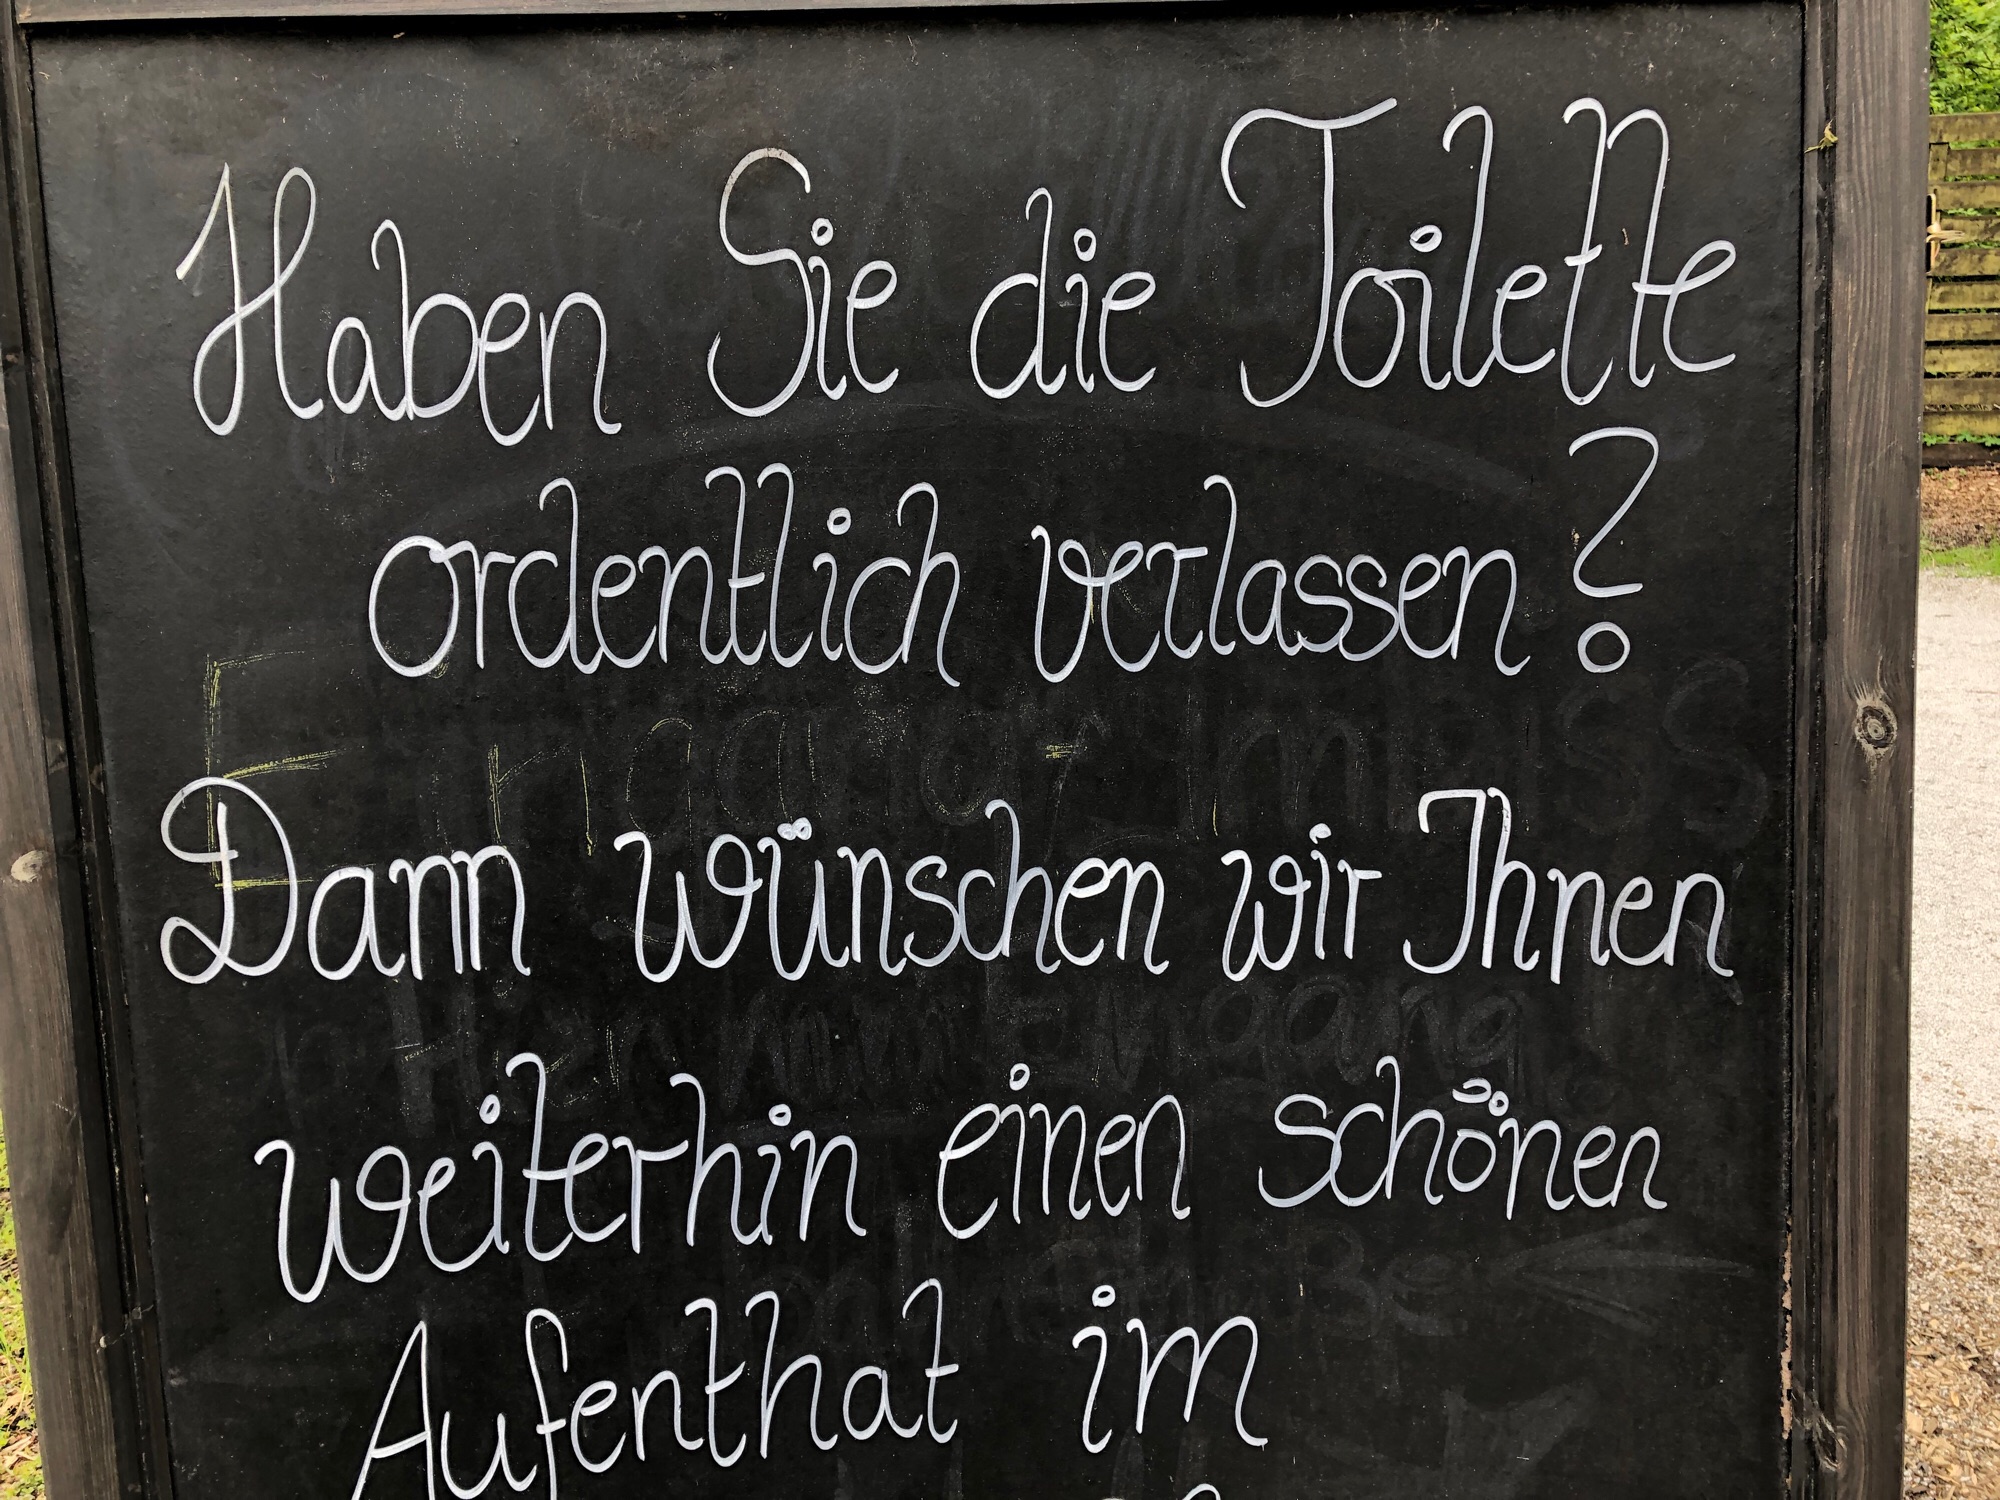 Haben Sie die Toilette
ordentlich verlassen?
Dann wünschen wir Ihnen
weiterhin einen schönen
Aufenthat im